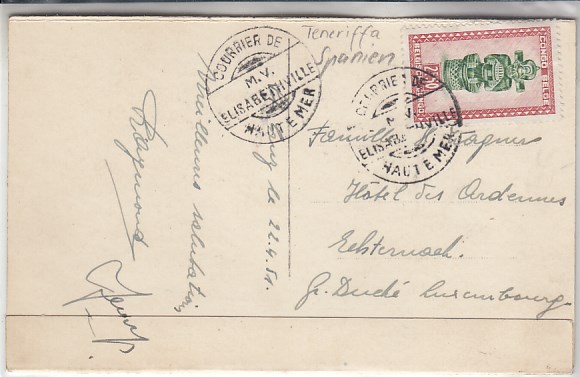 Teneriffa
Spanien
COURRIER DE
M.V.
ELISABETHVILLE
HAUTE MER
CONGO BELGE
BELGISCH CONGO
COURRIER DE
M.V.
ELISABETHVILLE
HAUTE MER
le 22.4.51.
salutations
Raymond
Famille Wagner
Hôtel des Ardennes
Echternach.
Gr. Duché Luxembourg